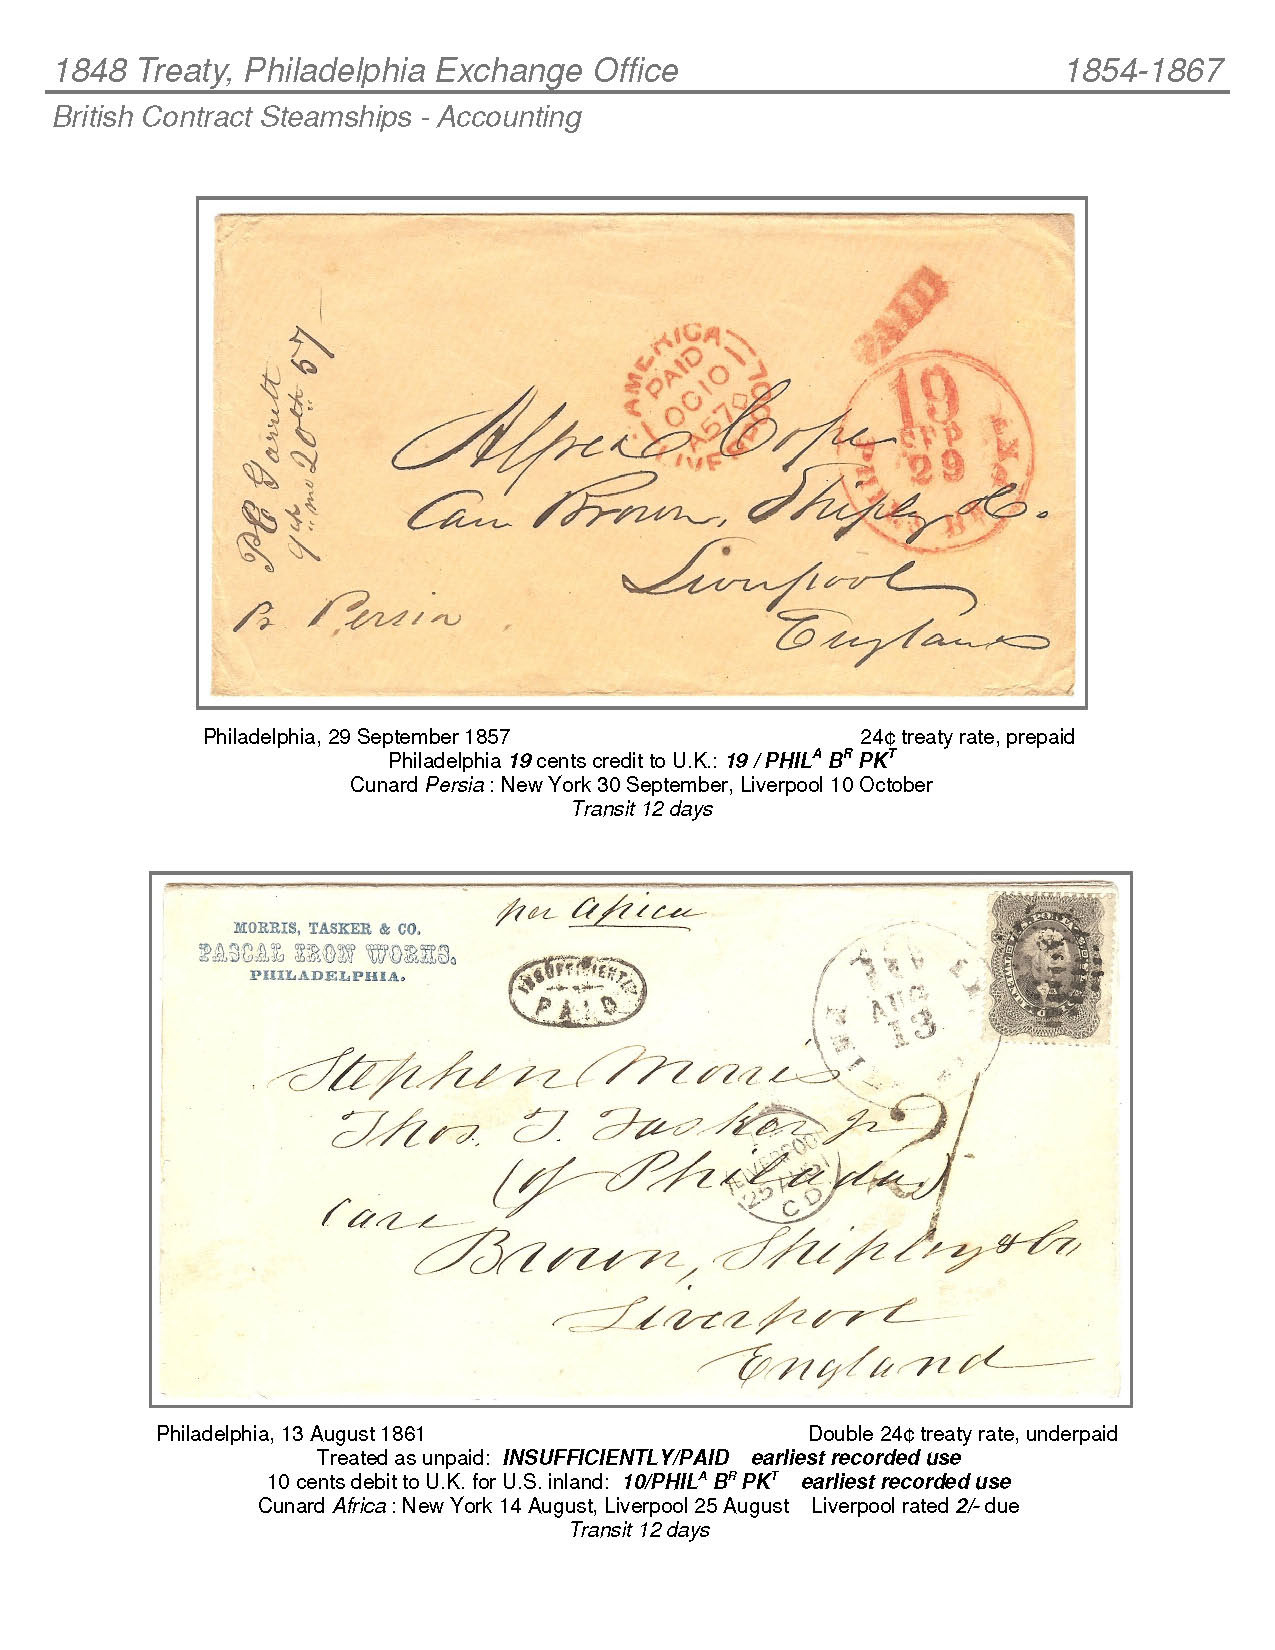 1848 Treaty, Philadelphia Exchange Office 1854-1867
British Contract Steamships - Accounting
PAID
AMERICA
PAID
OC 10
A57
LIVERPOOL
19
SEP
29
Alfred Cope
Care Brown, Shipley & Co.
Liverpool
England
P C Garrett
9th mo 20th 57
Pr Persia
Philadelphia, 29 September 1857 24¢ treaty rate, prepaid
Philadelphia 19 cents credit to U.K.: 19 / PHILᴬ Bᴿ PKᵀ
Cunard Persia : New York 30 September, Liverpool 10 October
Transit 12 days
per Africa
MORRIS, TASKER & CO.
PASCAL IRON WORKS.
PHILADELPHIA.
INSUFFICIENTLY
PAID
AUG
13
Stephen Morris
Thos. T. Tasker Jr
(of Philada)
Care
Brown, Shipley & Co
Liverpool
England
LIVERPOOL
25 AU 61
CD
Philadelphia, 13 August 1861 Double 24¢ treaty rate, underpaid
Treated as unpaid: INSUFFICIENTLY/PAID earliest recorded use
10 cents debit to U.K. for U.S. inland: 10/PHILᴬ Bᴿ PKᵀ earliest recorded use
Cunard Africa : New York 14 August, Liverpool 25 August Liverpool rated 2/- due
Transit 12 days